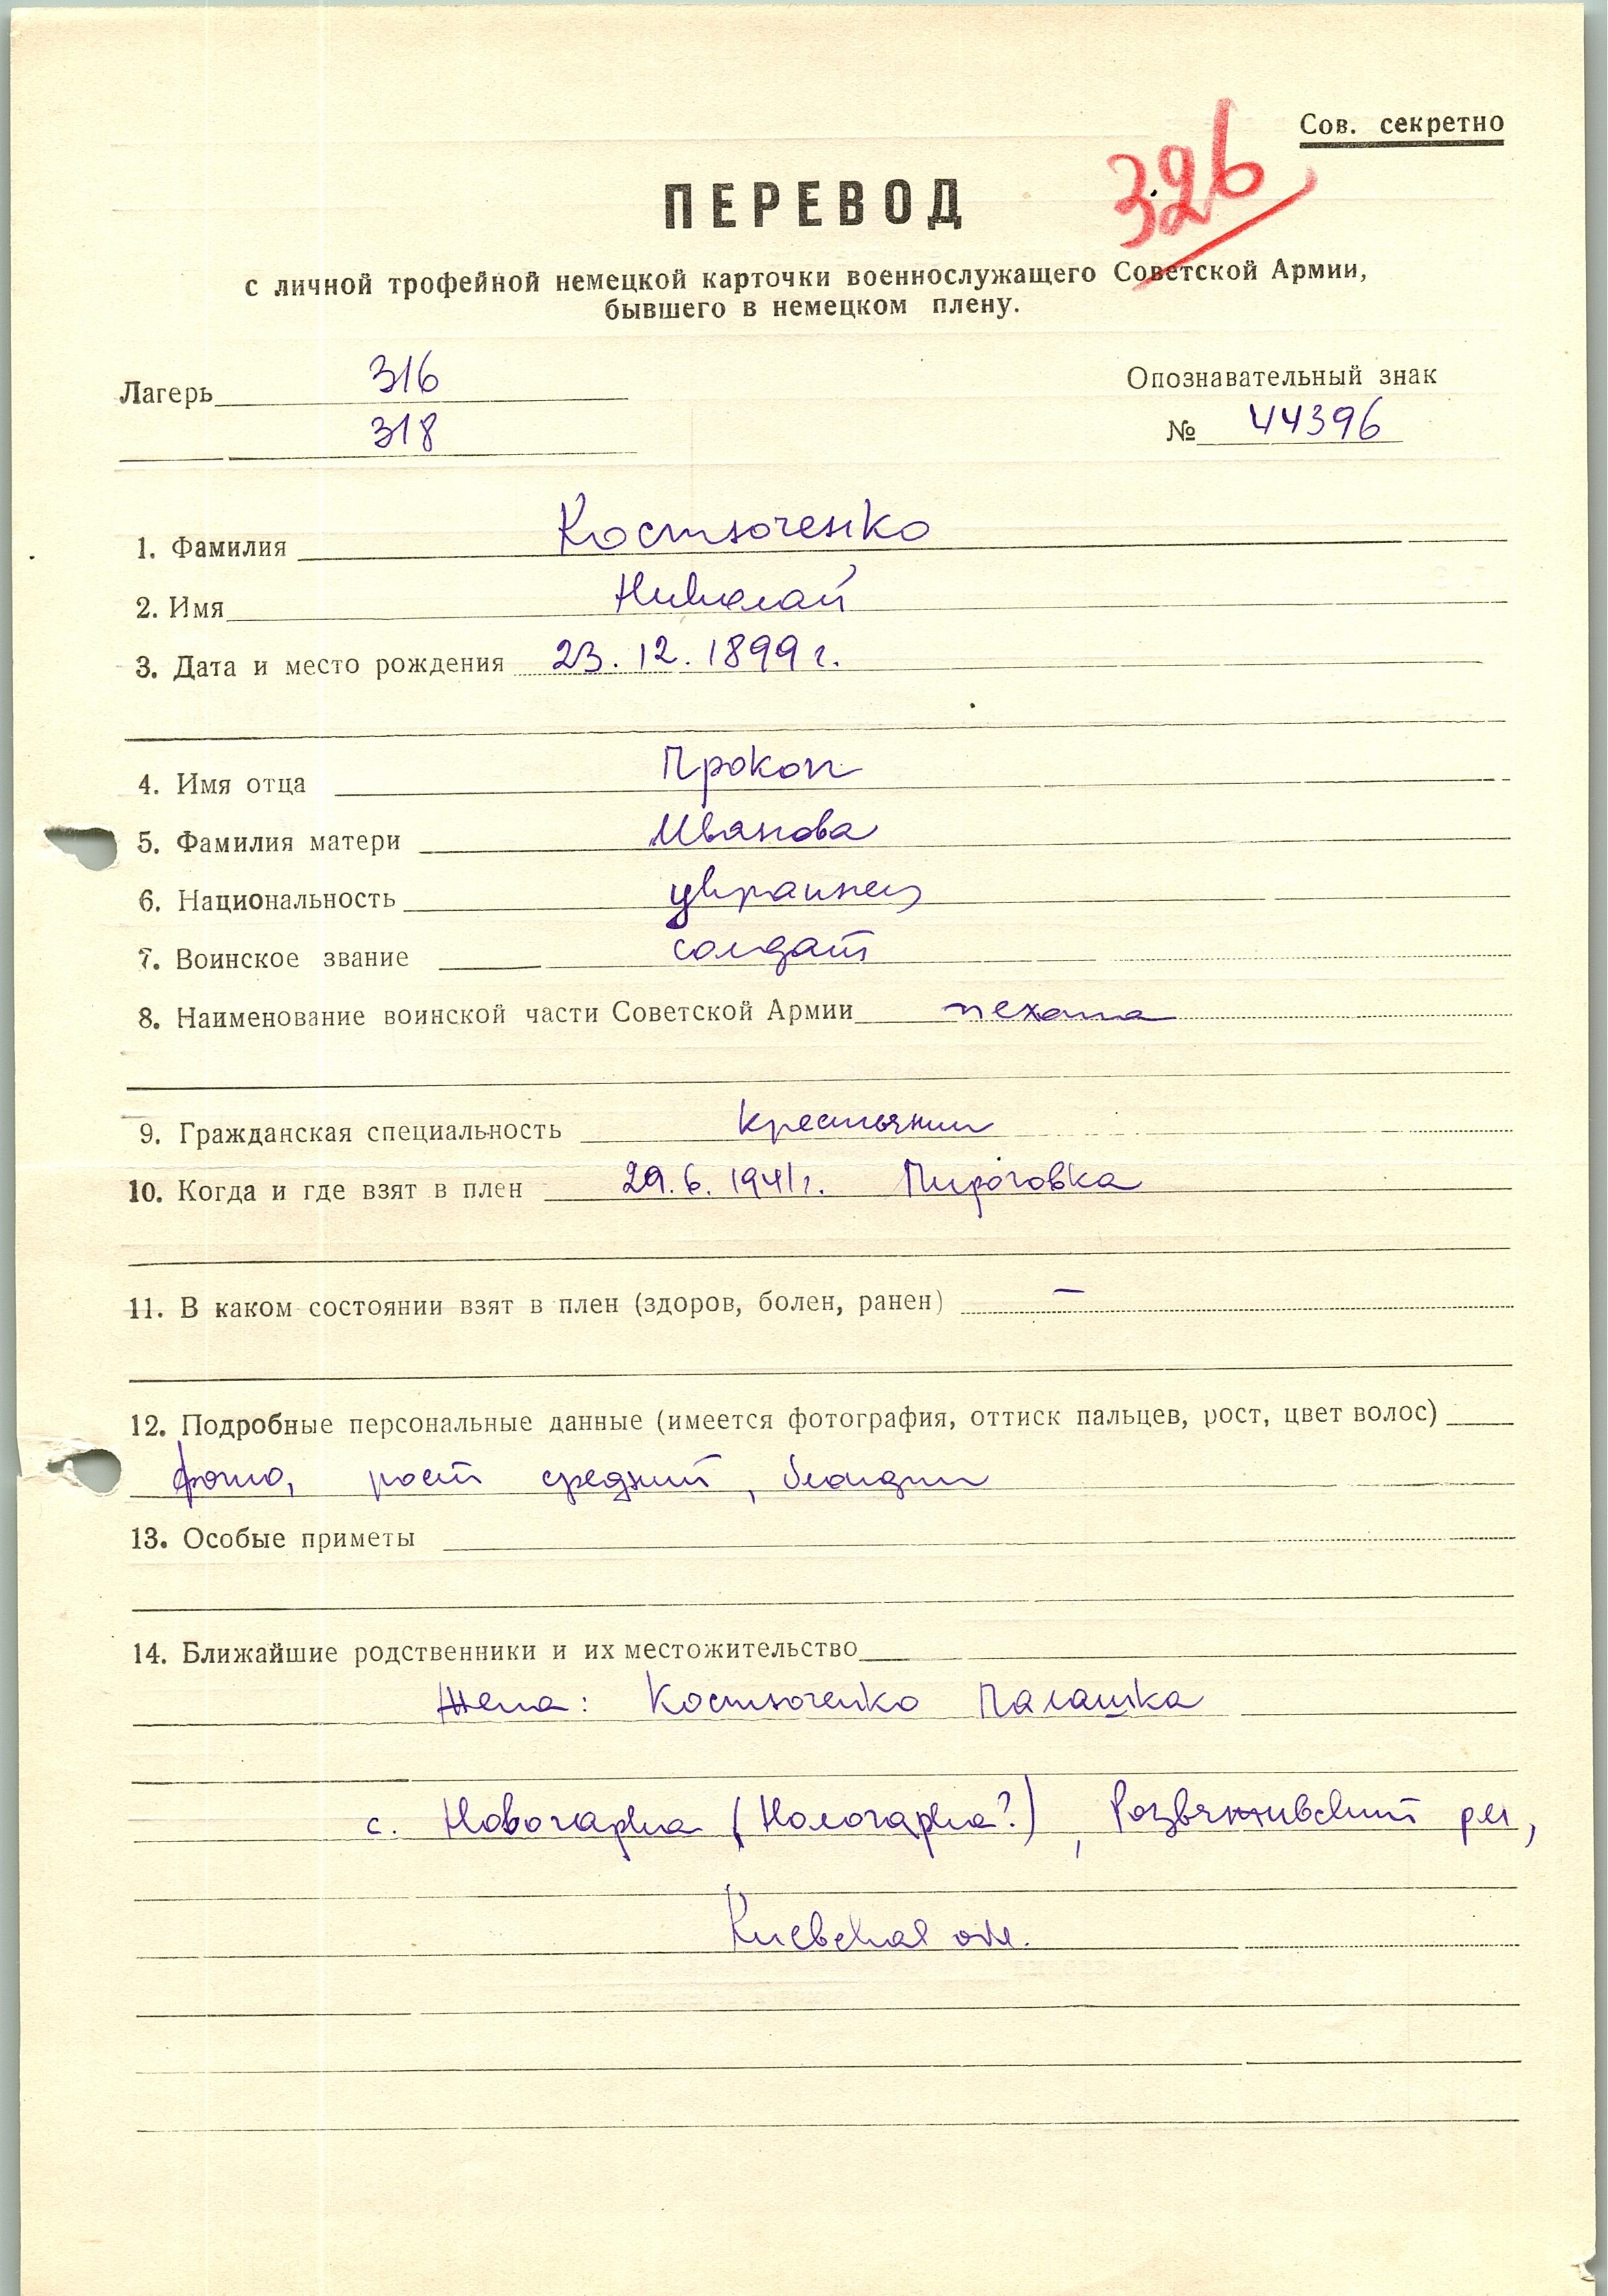 Сов. секретно
326
ПЕРЕВОД
с личной трофейной немецкой карточки военнослужащего Советской Армии,
бывшего в немецком плену.
Лагерь 316
318
Опознавательный знак
№ 44396
1. Фамилия Костюченко
2. Имя Николай
3. Дата и место рождения 23. 12. 1899 г.
4. Имя отца Прокоп
5. Фамилия матери Иванова
6. Национальность украинец
7. Воинское звание солдат
8. Наименование воинской части Советской Армии пехота
9. Гражданская специальность крестьянин
10. Когда и где взят в плен 29. 6. 1941 г. Пироговка
11. В каком состоянии взят в плен (здоров, болен, ранен) —
12. Подробные персональные данные (имеется фотография, оттиск пальцев, рост, цвет волос)
фото, рост средний, блондин
13. Особые приметы
14. Ближайшие родственники и их местожительство
Жена: Костюченко Палашка
с. Новогарка (Кологарка?), Розваживский р-н,
Киевская обл.